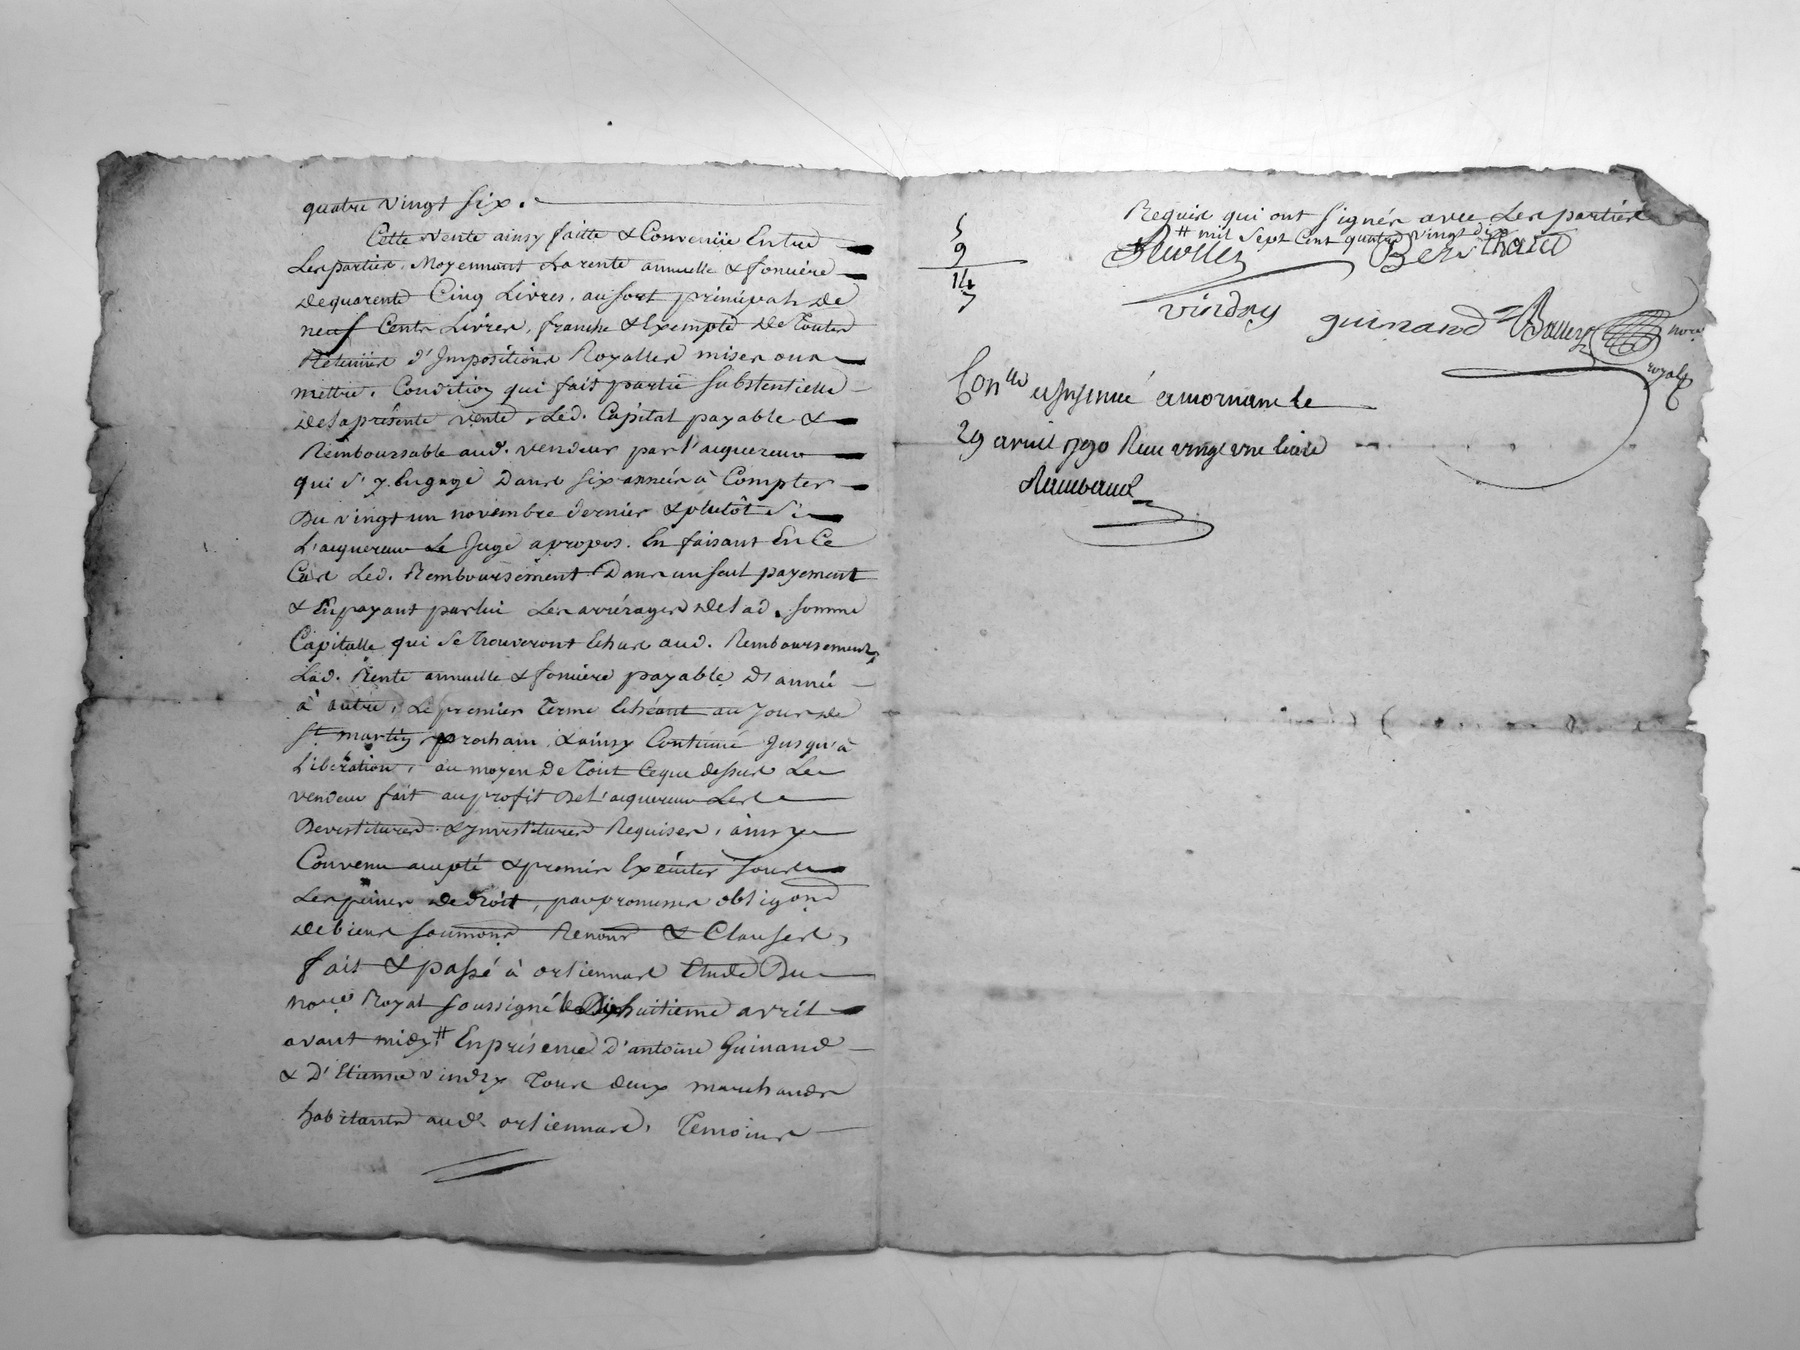 quatre vingt six.
Cette vente ainsy faitte & Convenüe Entre
Les parties, Moyennant La rente annuelle & fonciére
de quarente Cinq Livres, au sort principal de
neuf Cents Livres, franche & Exempte de Toutes
Retenües d'Impositions Royalles mises ou a
mettre, Condition qui fait partie substentielle
de la présente vente, Led. Capital payable &
Remboursable aud. vendeur par l'acquereur
qui s'y Engage Dans six années à Compter
Du vingt un novembre dernier & plutôt si
L'acquereur Le Juge apropos. En faisant En Ce
Cas Led. Remboursement Dans un seul payement
& En payant par lui Les arrérages de lad. somme
Capitalle qui se Trouveront Echus aud. Remboursement,
Lad. Rente annuelle & fonciére payable D'année
à autre, Le premier Terme Echéant au Jour de
St martin prochain, & ainsy Continué Jusqu'à
Libération, au moyen de Tout Ce que dessus Le
vendeur fait au profit De L'acquereur Les
Devestitures & Investitures Requises, ainsy
Convenu accepté & promis Exécuter sous
Les peines de Droit, par promesses obligaons
de biens soumons Renons & Clauses,
fait & passé à orliennas Etude Du
nore Royal soussigné le Dix huitieme avril
avant midy # En présence d'antoine Guinand
& D'Etienne vindry Tous deux marchands
habitants aud. orliennas, Temoins
Requis qui ont signés avec Les parties
# mil sept Cent quatre vingt dix
Berthaud
vindry guinand nore
royal
5
9
14
7
Conlle & Insinué a mornant le
29 avril 1790 Reçu vingt une livre